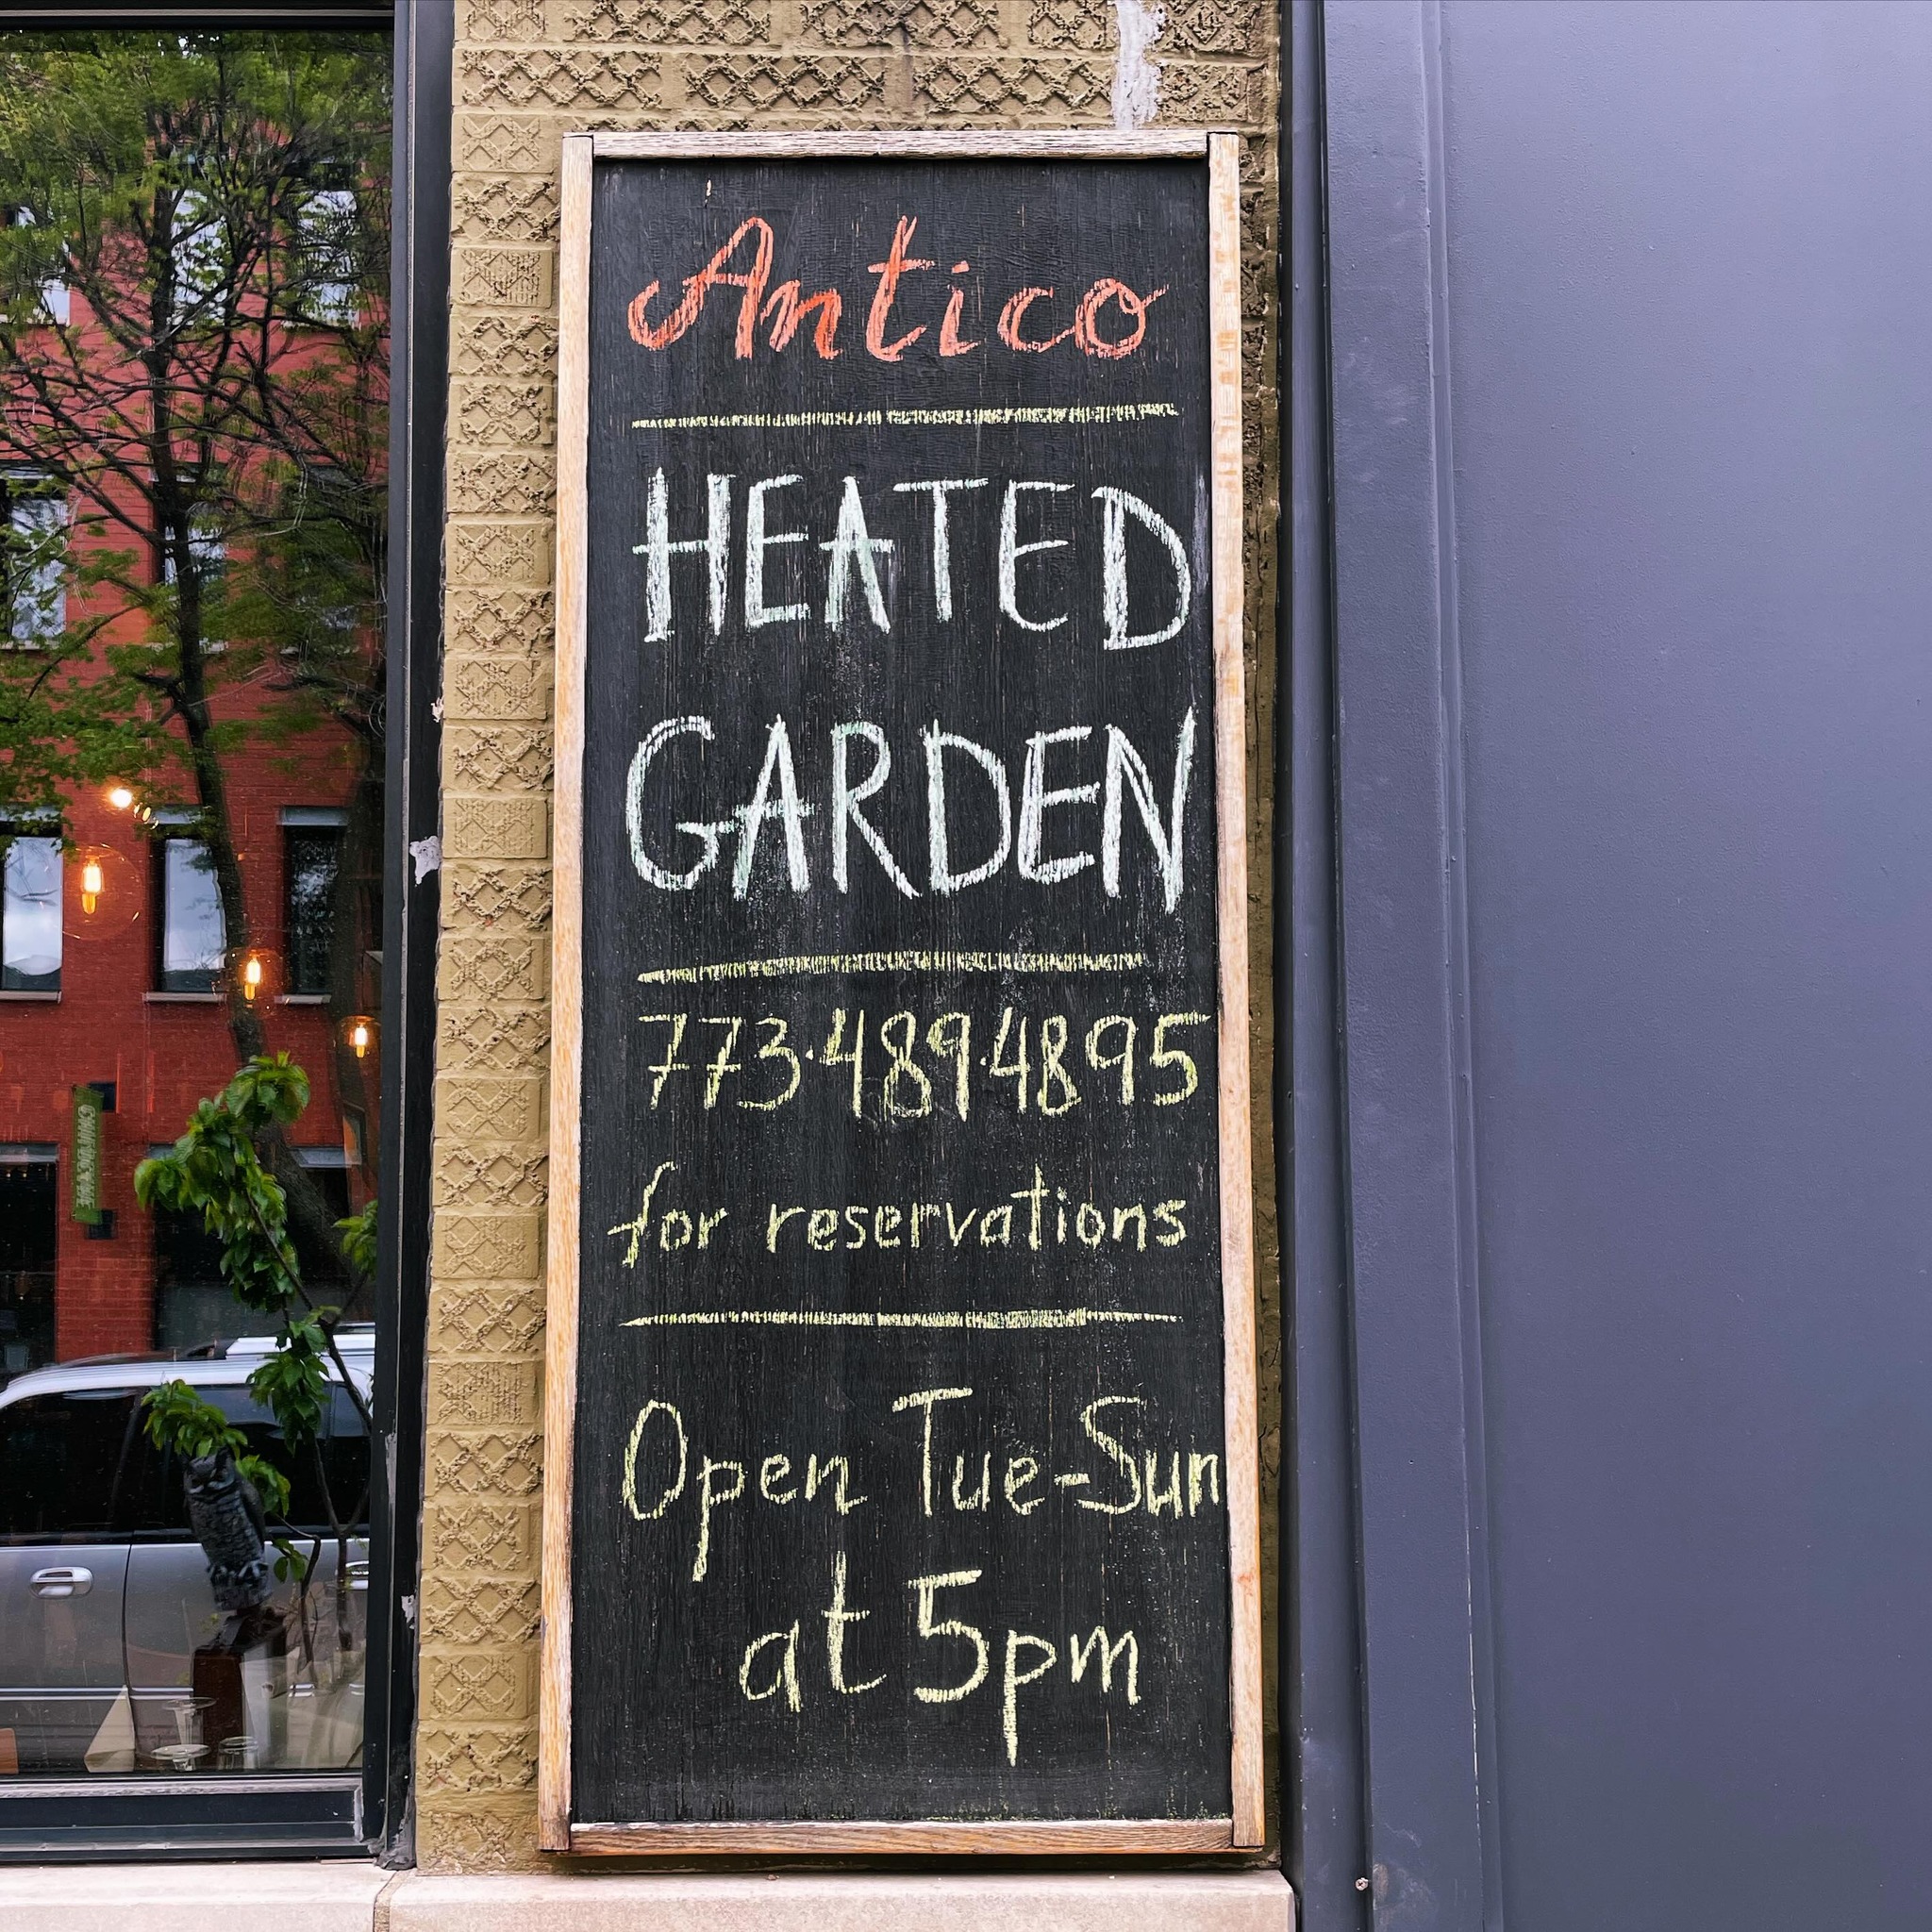 Antico
HEATED
GARDEN
773·489·4895
for reservations
Open Tue-Sun
at 5pm